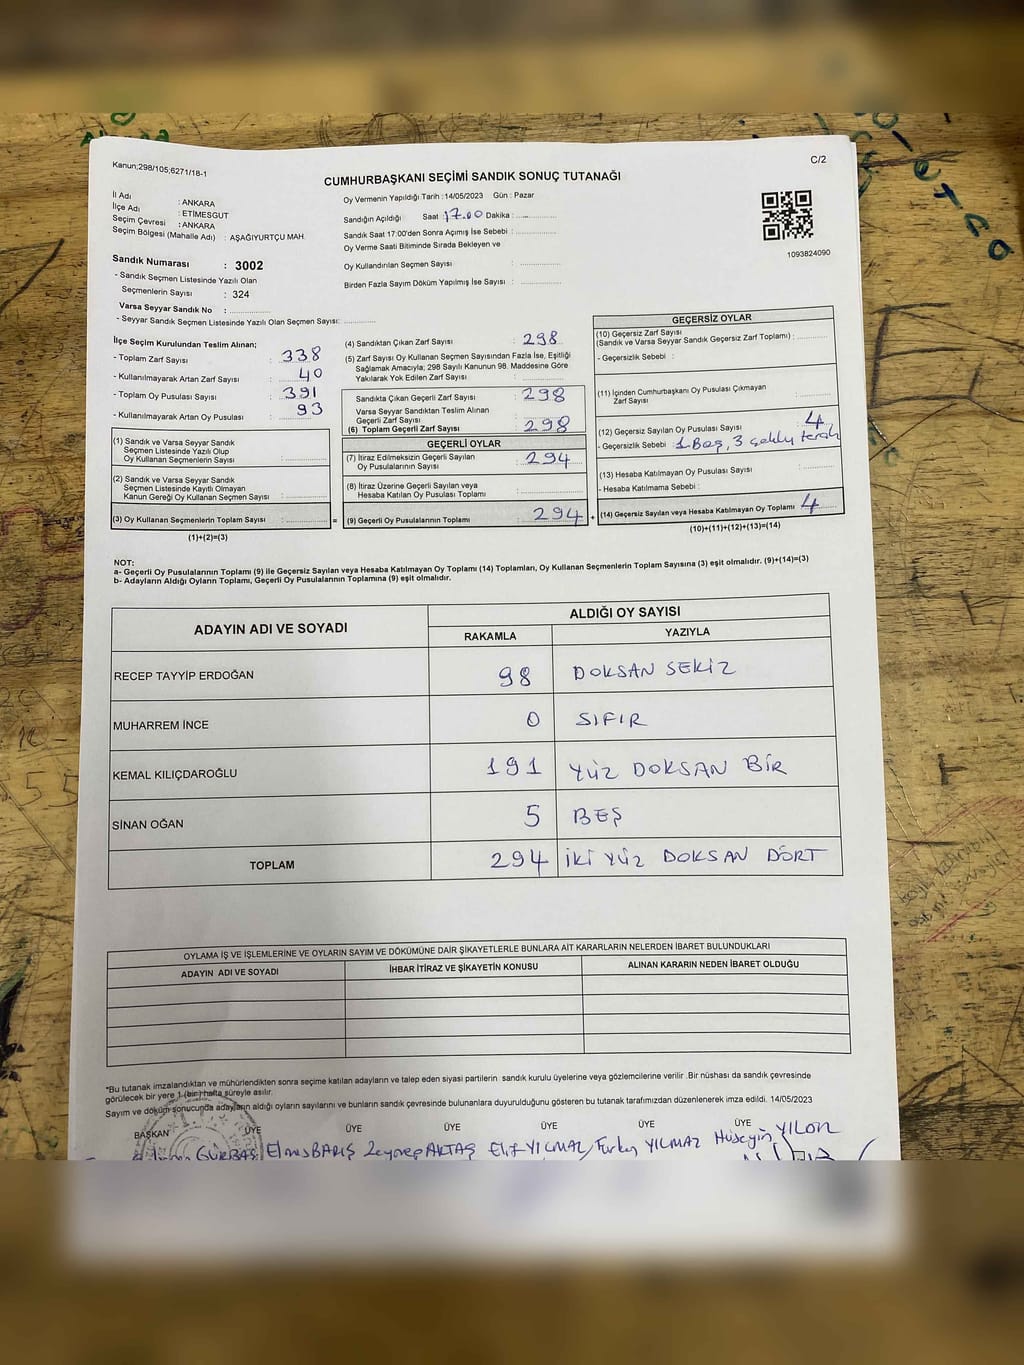 Kanun;298/105;6271/18-1
C/2
CUMHURBAŞKANI SEÇİMİ SANDIK SONUÇ TUTANAĞI
İl Adı : ANKARA
İlçe Adı : ETİMESGUT
Seçim Çevresi : ANKARA
Seçim Bölgesi (Mahalle Adı) : AŞAĞIYURTÇU MAH.
Sandık Numarası : 3002
- Sandık Seçmen Listesinde Yazılı Olan
Seçmenlerin Sayısı : 324
Varsa Seyyar Sandık No :
- Seyyar Sandık Seçmen Listesinde Yazılı Olan Seçmen Sayısı:
Oy Vermenin Yapıldığı Tarih : 14/05/2023 Gün : Pazar
Sandığın Açıldığı Saat 17.00 Dakika :
Sandık Saat 17:00'den Sonra Açımış İse Sebebi :
Oy Verme Saati Bitiminde Sırada Bekleyen ve
Oy Kullandırılan Seçmen Sayısı :
Birden Fazla Sayım Döküm Yapılmış İse Sayısı :
1093824090
İlçe Seçim Kurulundan Teslim Alınan;
- Toplam Zarf Sayısı : 338
- Kullanılmayarak Artan Zarf Sayısı : 40
- Toplam Oy Pusulası Sayısı : 391
- Kullanılmayarak Artan Oy Pusulası : 93
(1) Sandık ve Varsa Seyyar Sandık
Seçmen Listesinde Yazılı Olup
Oy Kullanan Seçmenlerin Sayısı :
(2) Sandık ve Varsa Seyyar Sandık
Seçmen Listesinde Kayıtlı Olmayan
Kanun Gereği Oy Kullanan Seçmen Sayısı :
(3) Oy Kullanan Seçmenlerin Toplam Sayısı : =
(1)+(2)=(3)
(4) Sandıktan Çıkan Zarf Sayısı : 298
(5) Zarf Sayısı Oy Kullanan Seçmen Sayısından Fazla İse, Eşitliği
Sağlamak Amacıyla; 298 Sayılı Kanunun 98. Maddesine Göre
Yakılarak Yok Edilen Zarf Sayısı :
Sandıkta Çıkan Geçerli Zarf Sayısı : 298
Varsa Seyyar Sandıktan Teslim Alınan
Geçerli Zarf Sayısı :
(6) Toplam Geçerli Zarf Sayısı : 298
GEÇERLİ OYLAR
(7) İtiraz Edilmeksizin Geçerli Sayılan
Oy Pusulalarının Sayısı : 294
(8) İtiraz Üzerine Geçerli Sayılan veya
Hesaba Katılan Oy Pusulası Toplamı :
(9) Geçerli Oy Pusulalarının Toplamı : 294 +
GEÇERSİZ OYLAR
(10) Geçersiz Zarf Sayısı
(Sandık ve Varsa Seyyar Sandık Geçersiz Zarf Toplamı) :
- Geçersizlik Sebebi :
(11) İçinden Cumhurbaşkanı Oy Pusulası Çıkmayan
Zarf Sayısı :
(12) Geçersiz Sayılan Oy Pusulası Sayısı : 4
- Geçersizlik Sebebi : 1 Boş, 3 çoklu tercih
(13) Hesaba Katılmayan Oy Pusulası Sayısı :
- Hesaba Katılmama Sebebi :
(14) Geçersiz Sayılan veya Hesaba Katılmayan Oy Toplamı : 4
(10)+(11)+(12)+(13)=(14)
NOT:
a- Geçerli Oy Pusulalarının Toplamı (9) ile Geçersiz Sayılan veya Hesaba Katılmayan Oy Toplamı (14) Toplamları, Oy Kullanan Seçmenlerin Toplam Sayısına (3) eşit olmalıdır. (9)+(14)=(3)
b- Adayların Aldığı Oyların Toplamı, Geçerli Oy Pusulalarının Toplamına (9) eşit olmalıdır.
ADAYIN ADI VE SOYADI
ALDIĞI OY SAYISI
RAKAMLA YAZIYLA
RECEP TAYYİP ERDOĞAN 98 DOKSAN SEKİZ
MUHARREM İNCE 0 SIFIR
KEMAL KILIÇDAROĞLU 191 YÜZ DOKSAN BİR
SİNAN OĞAN 5 BEŞ
TOPLAM 294 İKİ YÜZ DOKSAN DÖRT
OYLAMA İŞ VE İŞLEMLERİNE VE OYLARIN SAYIM VE DÖKÜMÜNE DAİR ŞİKAYETLERLE BUNLARA AİT KARARLARIN NELERDEN İBARET BULUNDUKLARI
ADAYIN ADI VE SOYADI İHBAR İTİRAZ VE ŞİKAYETİN KONUSU ALINAN KARARIN NEDEN İBARET OLDUĞU
*Bu tutanak imzalandıktan ve mühürlendikten sonra seçime katılan adayların ve talep eden siyasi partilerin sandık kurulu üyelerine veya gözlemcilerine verilir .Bir nüshası da sandık çevresinde
görülecek bir yere 1 (bir) hafta süreyle asılır.
Sayım ve döküm sonucunda adayların aldığı oyların sayılarını ve bunların sandık çevresinde bulunanlara duyurulduğunu gösteren bu tutanak tarafımızdan düzenlenerek imza edildi. 14/05/2023
BAŞKAN ÜYE ÜYE ÜYE ÜYE ÜYE ÜYE
GÜRBAŞ Elmas BARIŞ Zeynep AKTAŞ Elif YILMAZ Furkan YILMAZ Hüseyin